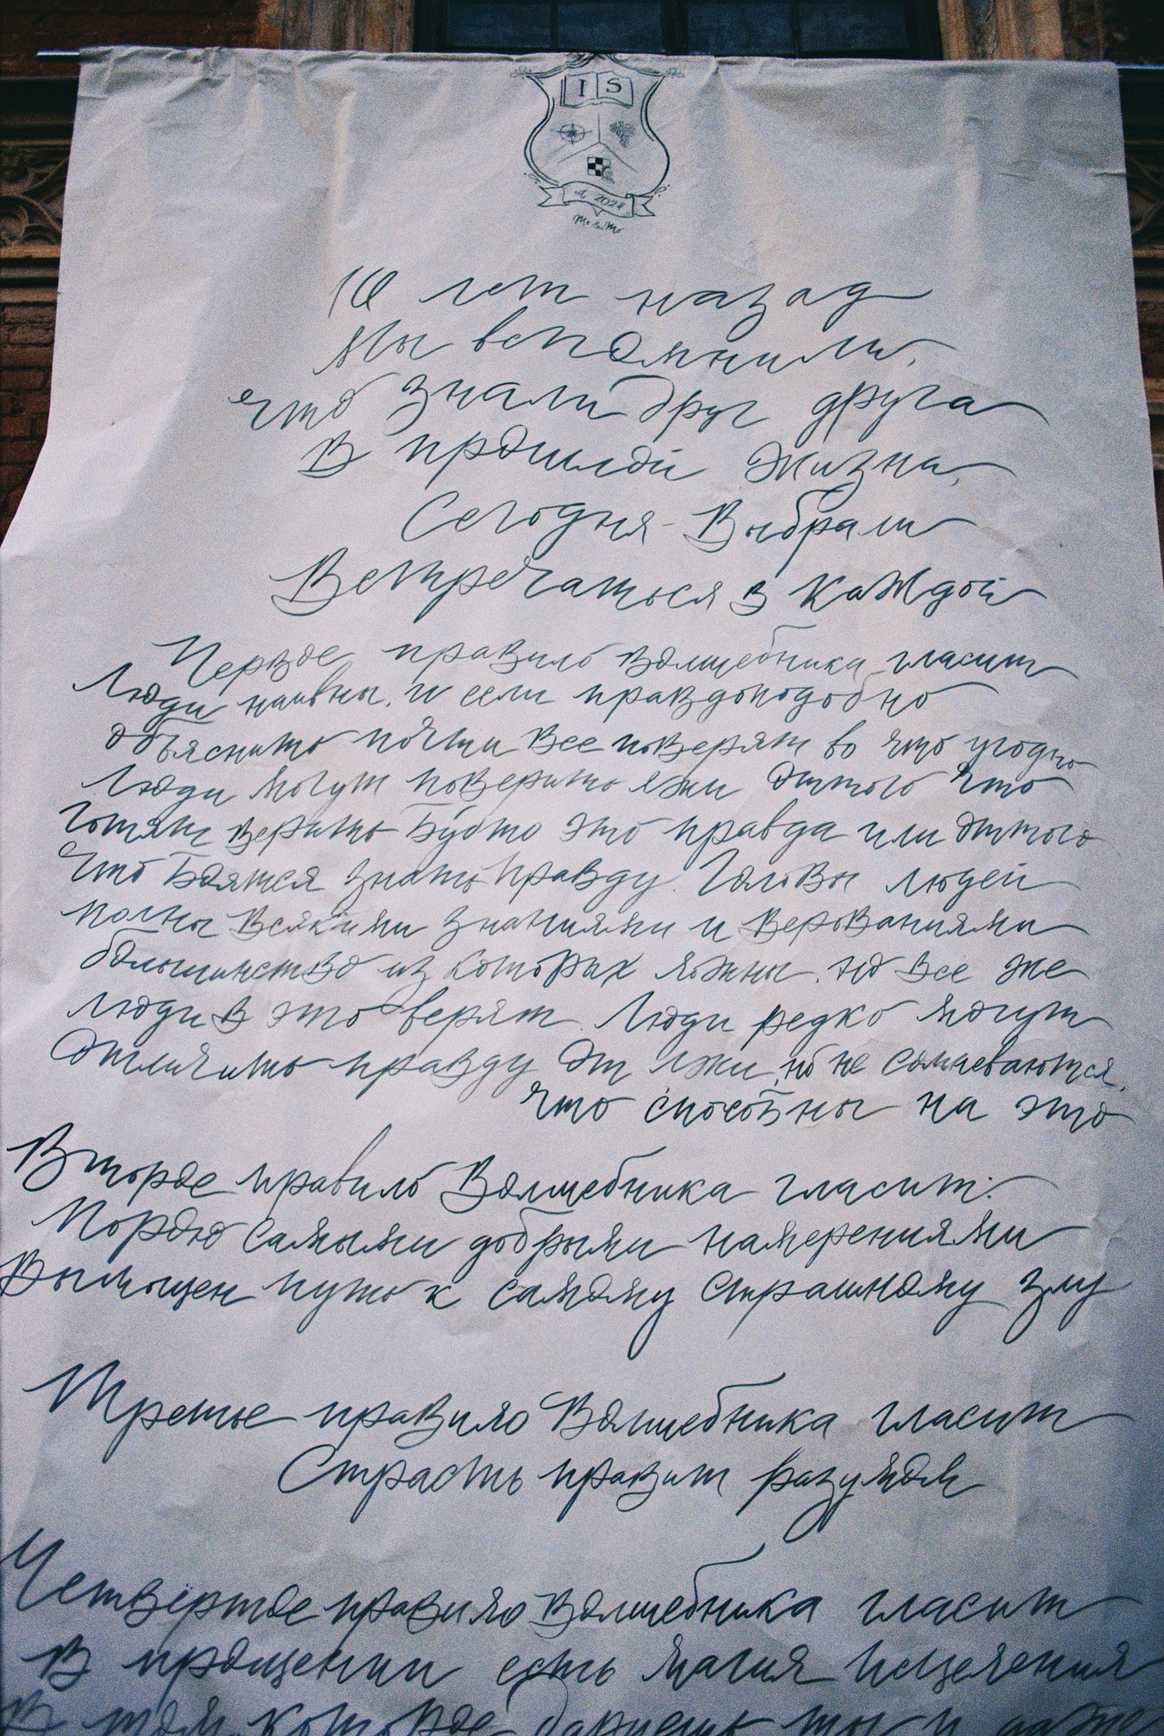 I S
est. 2024
Mr & Mr
10 лет назад
Мы вспомнили,
что знали друг друга
В прошлой жизни,
Сегодня - Выбрали
Встречаться в каждой
Первое правило волшебника гласит
Люди наивны. и если правдоподобно
объяснить почти все поверят во что угодно
Люди могут поверить лжи оттого что
хотят верить будто это правда или оттого
Что боятся знать правду. Головы людей
полны всякими знаниями и верованиями
большинство из которых ложны. но все же
люди в это верят. Люди редко могут
Отличить правду от лжи, но не сомневаются,
что способны на это
Второе правило Волшебника гласит:
Порою самыми добрыми намерениями
Вымощен путь к самому страшному злу
Третье правило Волшебника гласит
Страсть правит разумом
Четвёртое правило Волшебника гласит
В прощении есть магия исцеления
В том, которое даришь ты и даже